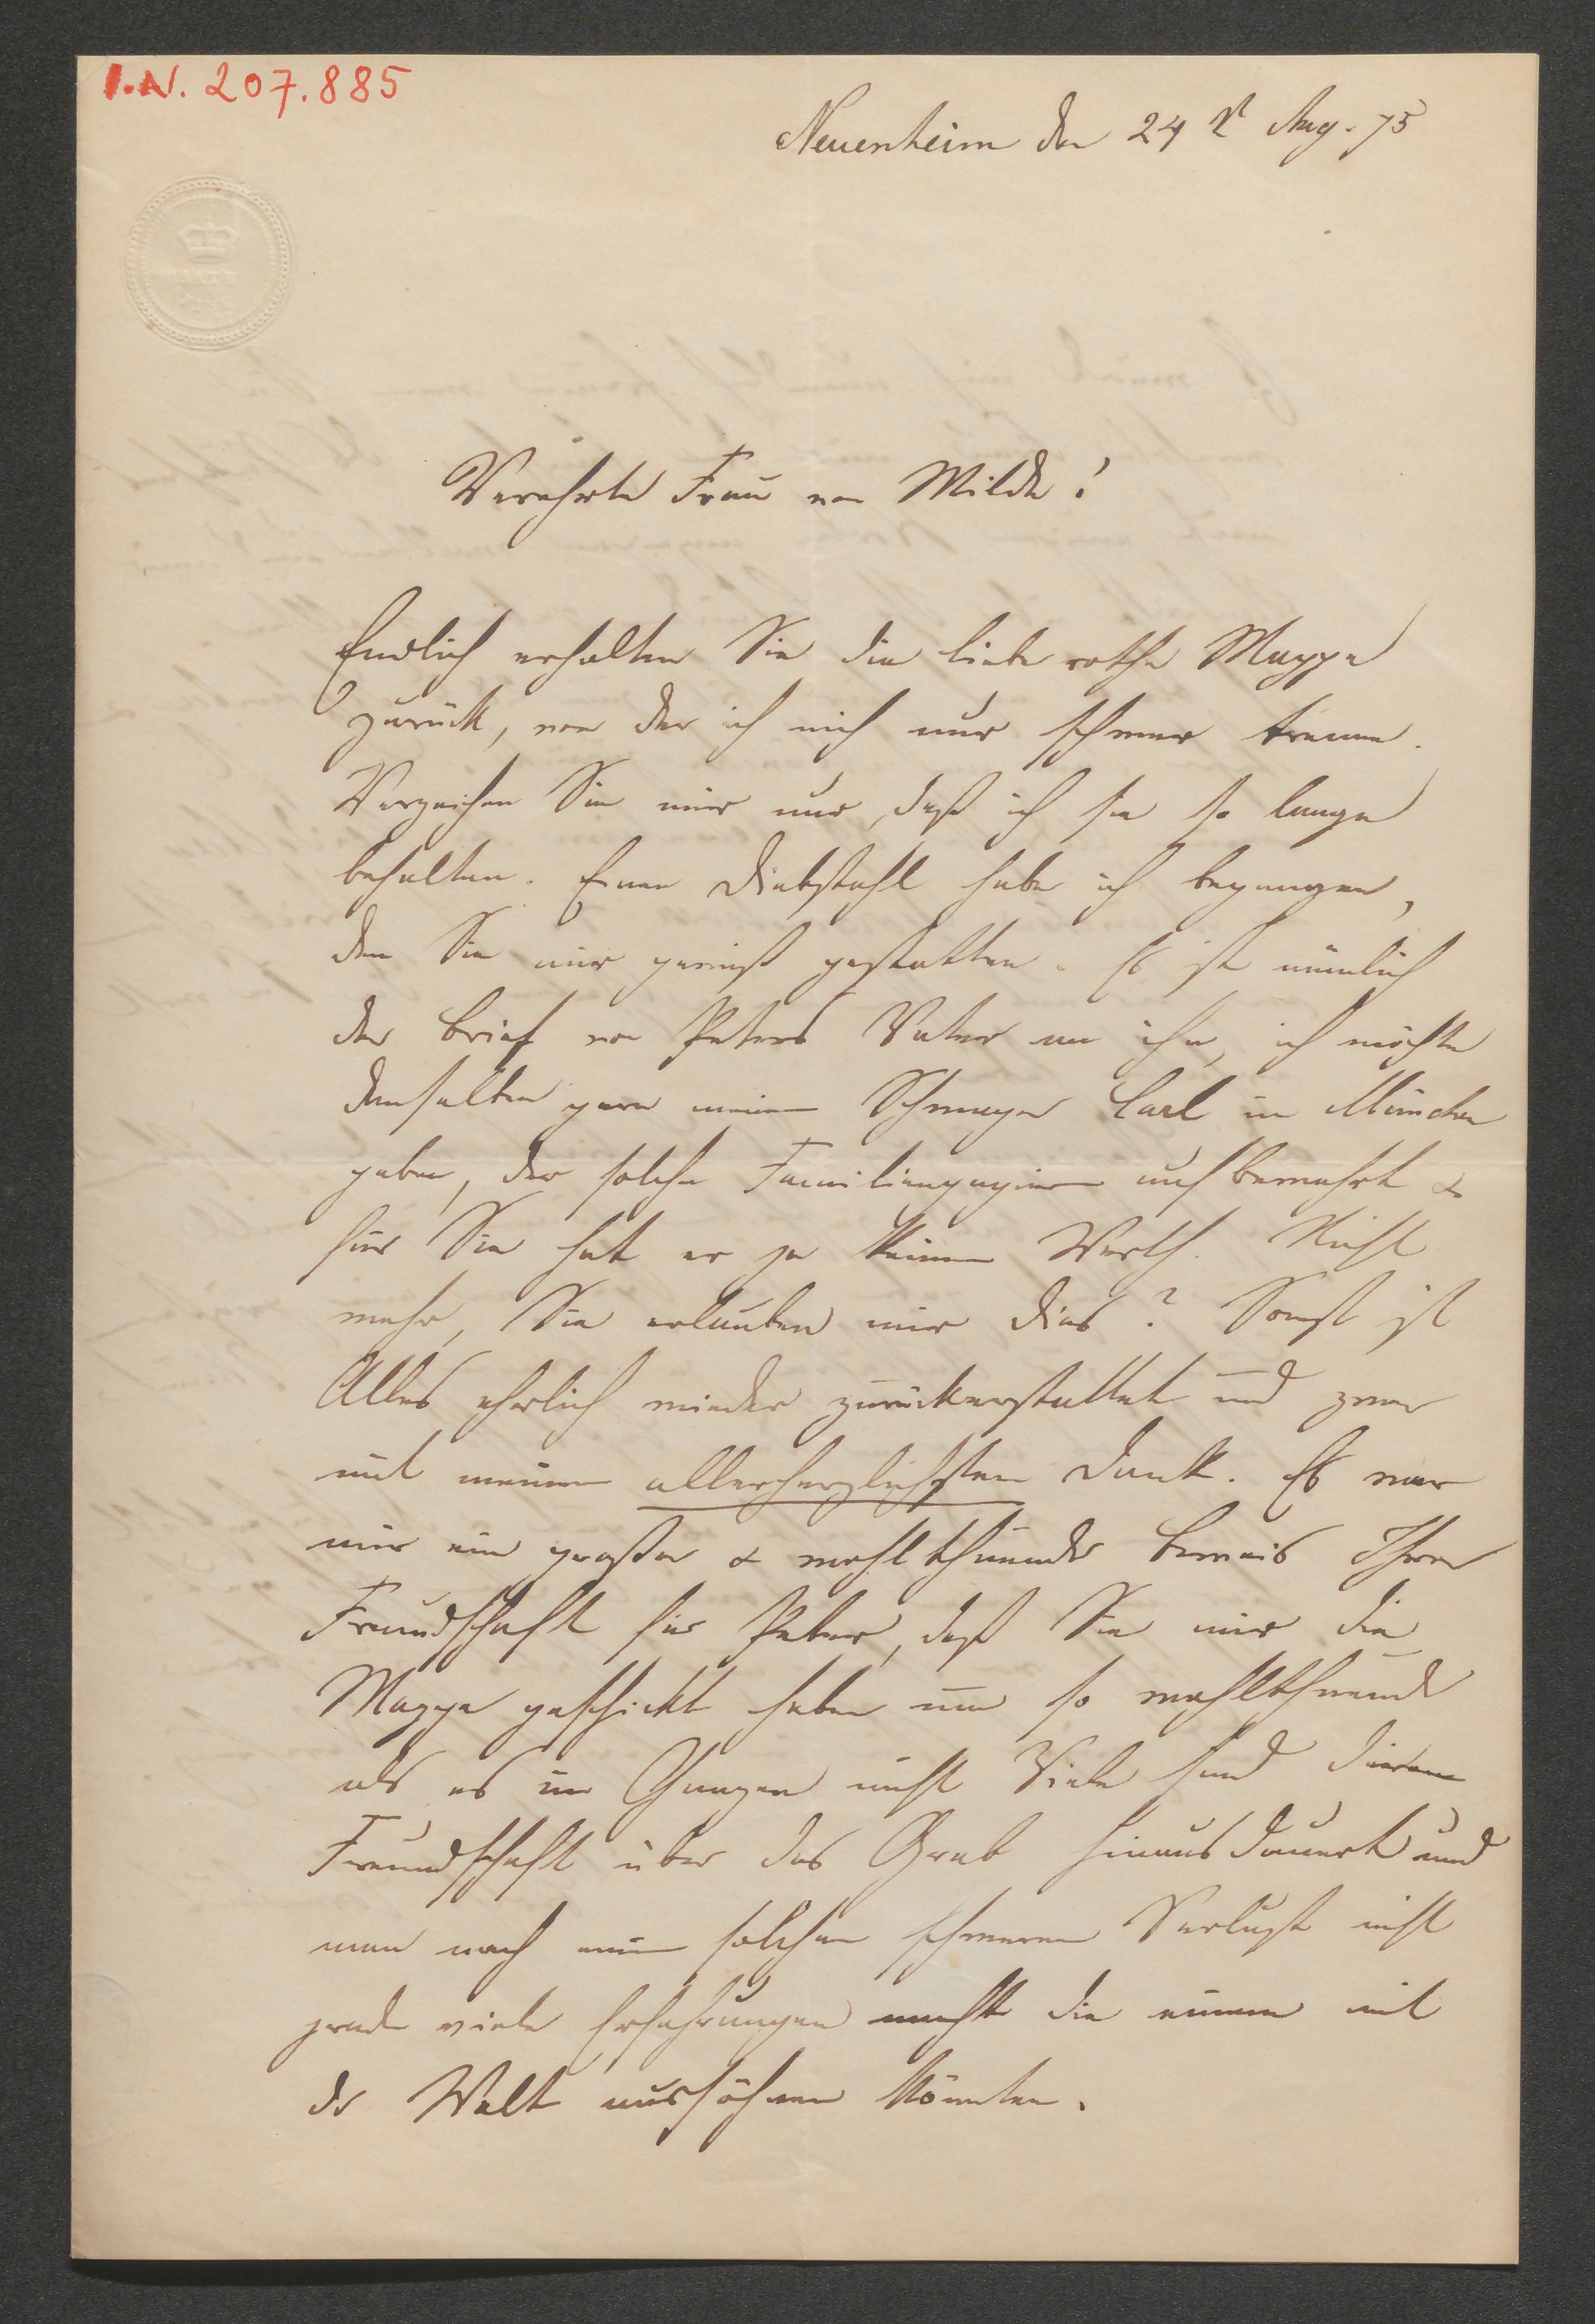 I.N. 207.885
Neuenheim den 24 t Aug. 75
Verehrte Frau von Milde!
Endlich erhalten Sie die liebe rothe Mappe
zurück, von der ich mich nur schwer trenne.
Verzeihen Sie mir nur, daß ich sie so lange
behalten. Einen Diebstahl habe ich begangen,
den Sie mir gewiß gestatten. Es ist nämlich
der Brief von Peters Vater an ihn, ich möchte
denselben gern meinem Schwager Carl in München
geben, der solche Familienpapiere aufbewahrt &
für Sie hat er ja keinen Werth. Nicht
wahr, Sie erlauben mir dies? Sonst ist
Alles ehrlich wieder zurückerstattet und zwar
mit meinem allerherzlichsten Dank. Es war
mir ein großer & wohlthuender Beweis Ihrer
Freundschaft für Peter, daß Sie mir die
Mappe geschickt haben um so wohlthuender
als es im Ganzen nicht Viele sind deren
Freundschaft über das Grab hinaus dauert und
man nach einem solchen schweren Verlust nicht
grade viele Erfahrungen macht die einen mit
der Welt aussöhnen könnten.